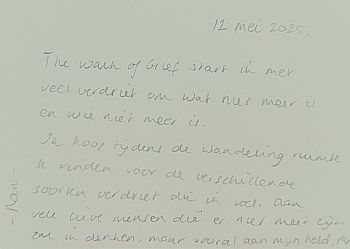 12 mei 2025,
The walk of Grief start ik met
veel verdriet om wat niet meer is
en wie niet meer is.
Ik hoop tijdens de wandeling ruimte
te vinden voor de verschillende
soorten verdriet die ik voel. Aan
vele lieve mensen die er niet meer zijn
zal ik denken, maar vooral aan mijn held,